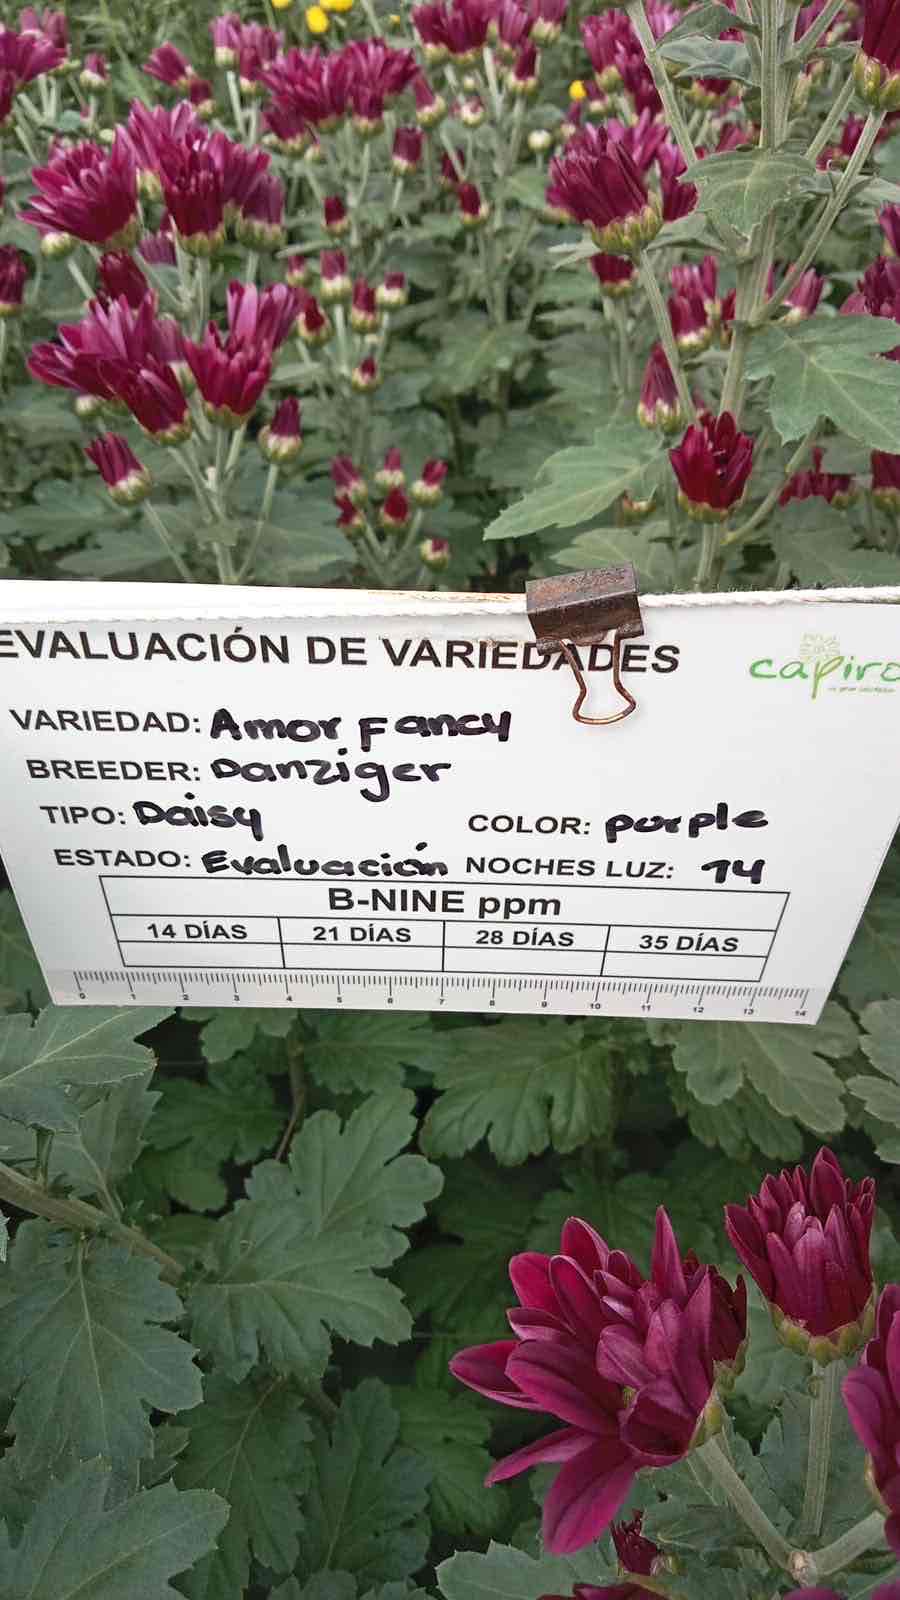 EVALUACIÓN DE VARIEDADES
capiro
VARIEDAD: Amor Fancy
BREEDER: Danziger
TIPO: Daisy COLOR: purple
ESTADO: Evaluación NOCHES LUZ: 14
B-NINE ppm
14 DÍAS 21 DÍAS 28 DÍAS 35 DÍAS
0 1 2 3 4 5 6 7 8 9 10 11 12 13 14